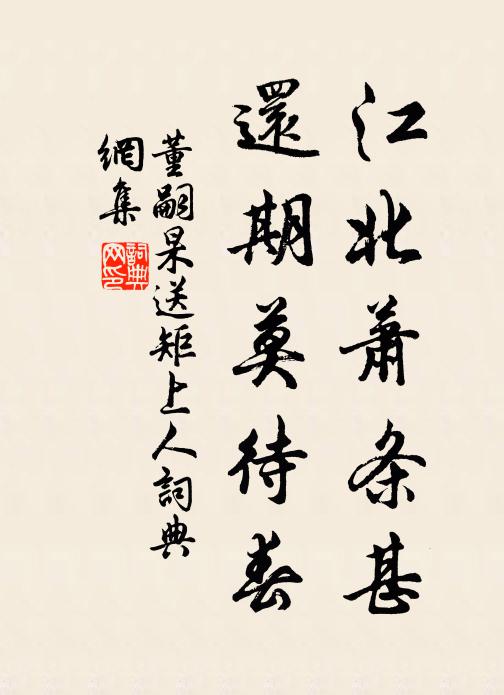 江北蕭条甚
還期莫待春
董嗣杲送矩上人詞典
網集
詞典網印